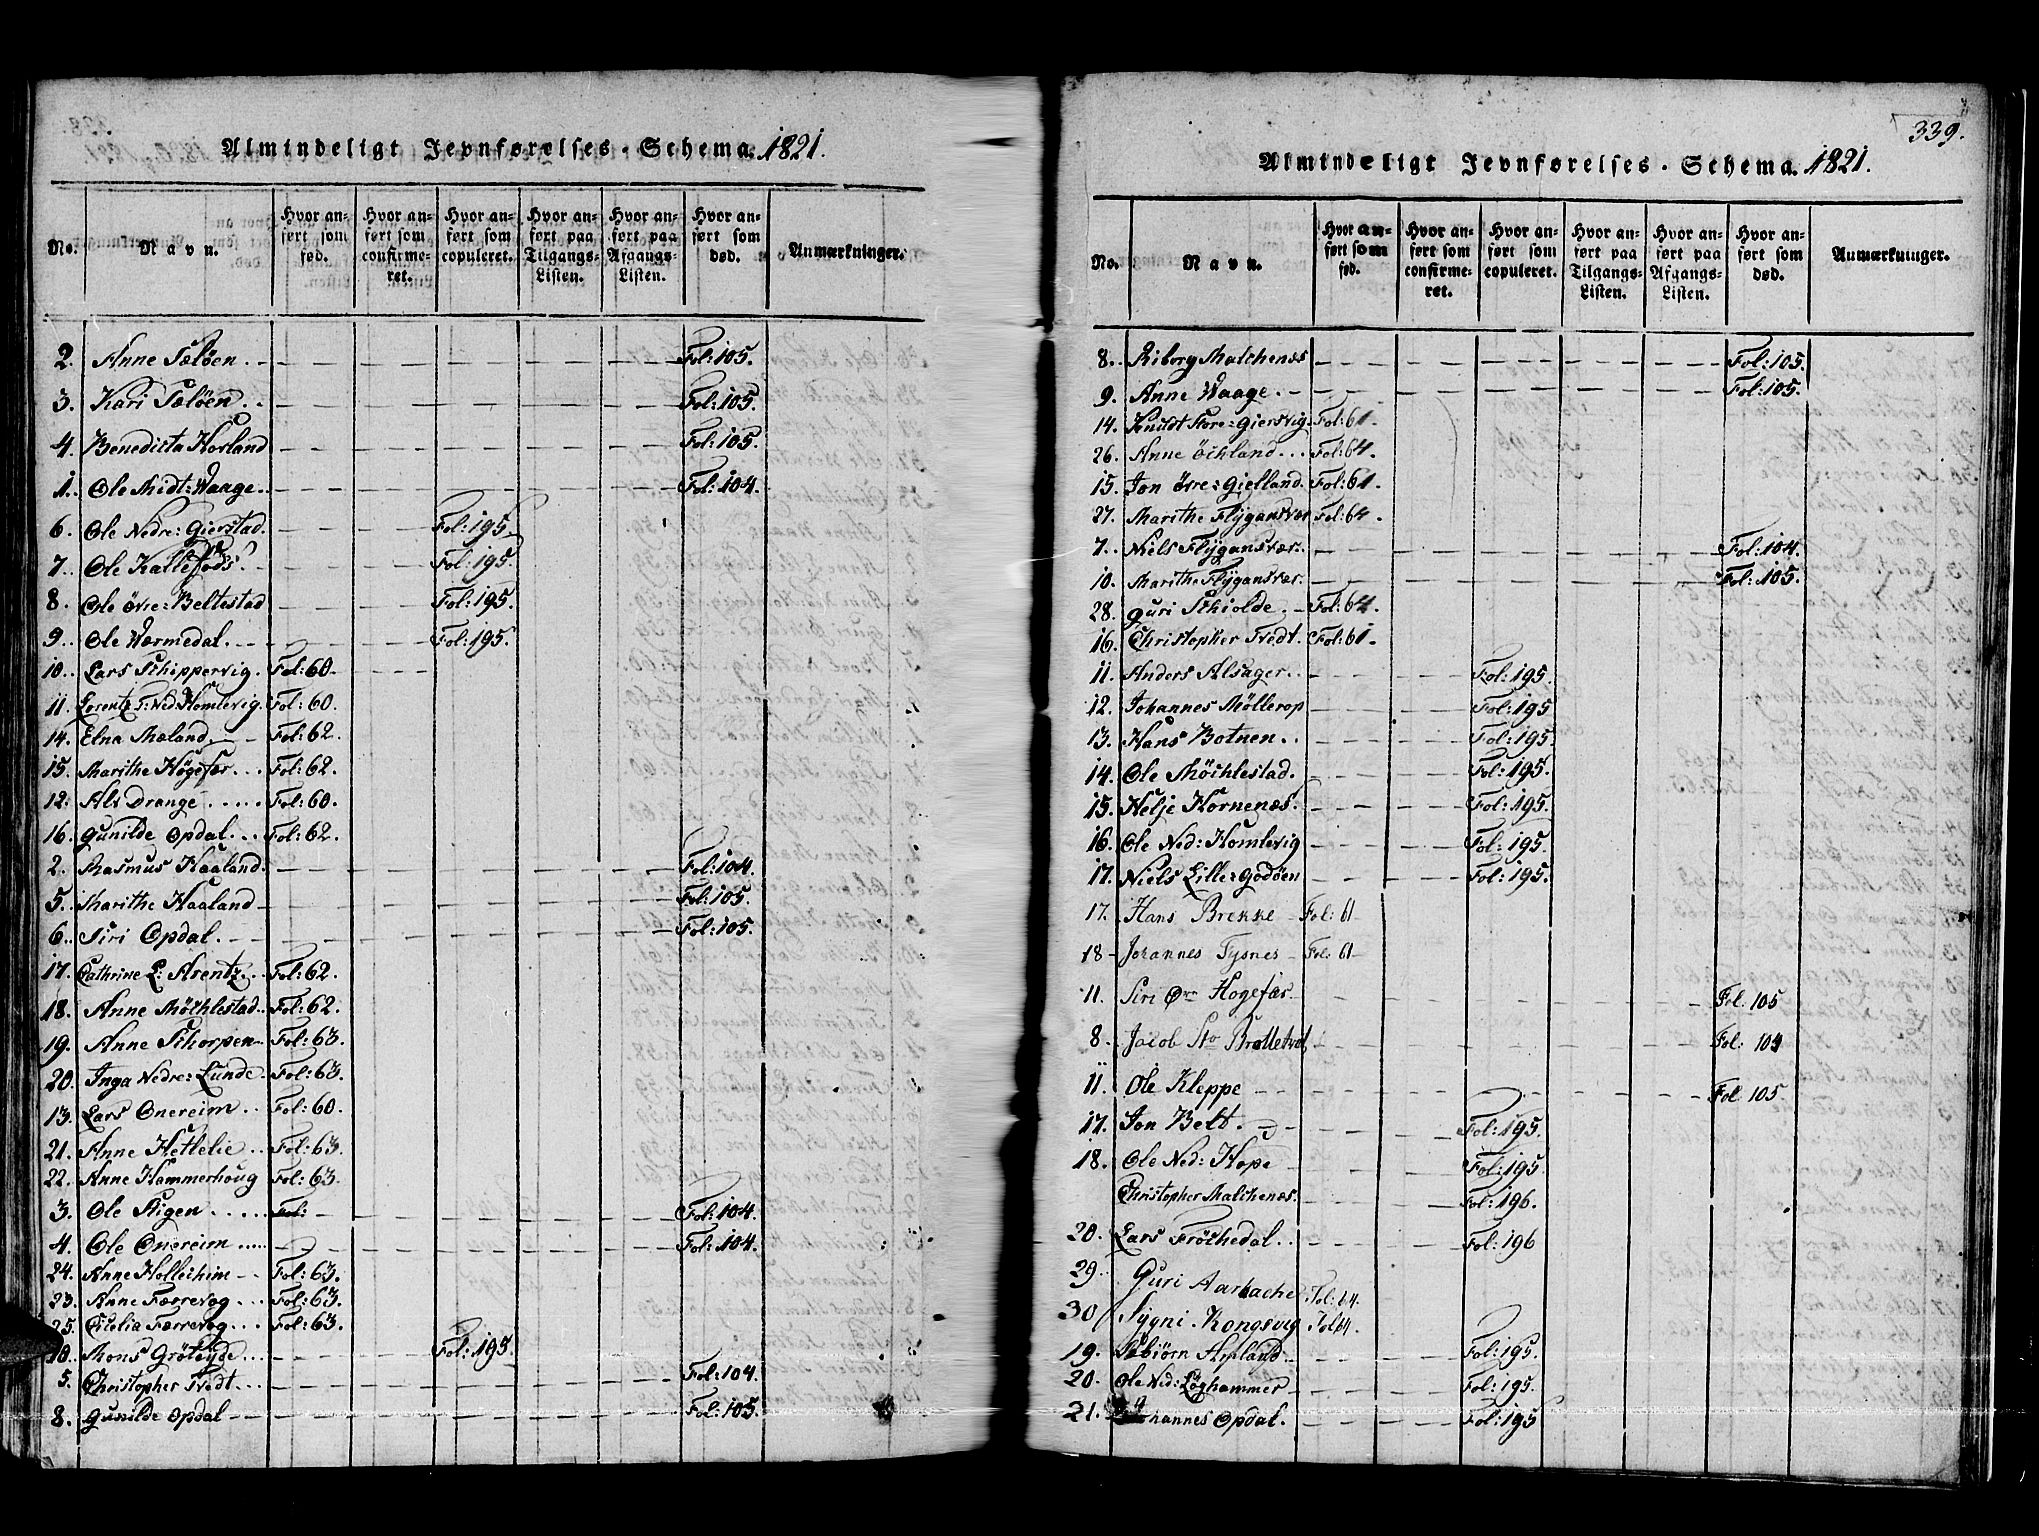 Almindeligt Jevnførelses-Schema. 1821.
No. Navn. Hvor anført som fød. Hvor anført som confirmeret. Hvor anført som copuleret. Hvor anført paa Tilgangs-Listen. Hvor anført paa Afgangs-Listen. Hvor anført som død. Anmærkninger.
2. Anne Sæløen. Fol: 105.
3. Kari Sæløen. Fol: 105.
4. Benedicta Horland Fol: 105.
1. Ole Midt: Waage. Fol: 104.
6. Ole Nedre: Gierstad. Fol: 195.
7. Ole Kallefods. Fol: 195.
8. Ole övre: Beltestad Fol: 195.
9. Ole Wærmedal. Fol: 195.
10. Lars Schippervig. Fol: 60.
11. Lorentz T: Ned: Homlevig. Fol: 60.
14. Elna Mæland. Fol: 62.
15. Marithe Høgefær Fol: 62.
12. Alv Drange Fol: 60.
16. Gunilde Opdal. Fol: 62.
2. Rasmus Haaland. Fol: 104.
5. Marithe Haaland Fol: 105.
6. Siri Opdal. Fol: 105.
17. Cathrine L: Arentz. Fol: 62.
18. Anne Möchlestad. Fol: 62.
19. Anne Schorpen Fol: 63.
20. Inga Nedre: Lunde. Fol: 63.
13. Lars Onereim Fol: 60.
21. Anne Hetlelie Fol: 63.
22. Anne Hammerhoug Fol: 63.
3. Ole Stigen Fol: Fol: 104.
4. Ole Onereim Fol: 104.
24. Anne Hollechim Fol: 63.
23. Anne Færrevog Fol: 63.
25. Cicelia Færrevog Fol: 63.
10. Mons Gröteyde Fol: 195
5. Christopher Tvedt Fol: 104.
8. Gunilde Opdal Fol: 105.
339.
Almindeligt Jevnførelses-Schema. 1821.
No. Navn. Hvor anført som fød. Hvor anført som confirmeret. Hvor anført som copuleret. Hvor anført paa Tilgangs-Listen. Hvor anført paa Afgangs-Listen. Hvor anført som død. Anmærkninger.
8. Riborg Malchenæs Fol: 105.
9. Anne Waage. Fol: 105.
14. Knudt Store: Giersvig. Fol: 61.
26. Anne Öchland Fol: 64.
15. Jon övre: Gielland. Fol: 61.
27. Marithe Flÿgansvær Fol: 64.
7. Niels Flÿgansvær. Fol: 104.
10. Marithe Flÿgansvær. Fol: 105.
28. Guri Schiolde. Fol: 64.
16. Christopher Tvedt. Fol: 61.
11. Anders Alsager. Fol: 195.
12. Johannes Möllerop Fol: 195
13. Hans Botnen. Fol: 195.
14. Ole Möchlestad. Fol: 195.
15. Helje Hornenæs. Fol: 195.
16. Ole Ned: Homlevig Fol: 195.
17. Niels Lille: Godöen Fol: 195.
17. Hans Brekke Fol: 61
18 Johannes Tysnes Fol: 61
11. Siri Øvr Hogefær. Fol. 105
8. Jacob Sto Brolletvet Fol: 104
11 Ole Kleppe Fol 105
17. Jon Belt. Fol: 195.
18. Ole Ned: Hope Fol: 195.
Christopher Malchenæs. Fol: 196.
20. Lars Fröchedal. Fol: 196
29. Guri Aarbache Fol: 64.
30 Sygni Kongsvig Fol 64.
19. Esbiörn Apland Fol: 195.
20. Ole Ned: Löghammer Fol: 195.
21. Johannes Opdal. Fol: 195